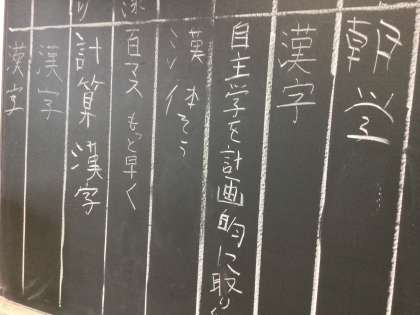 朝学
漢字
自主学を計画的に取り
漢
体そう
百マス もっと早く
計算 漢字
漢字
漢字